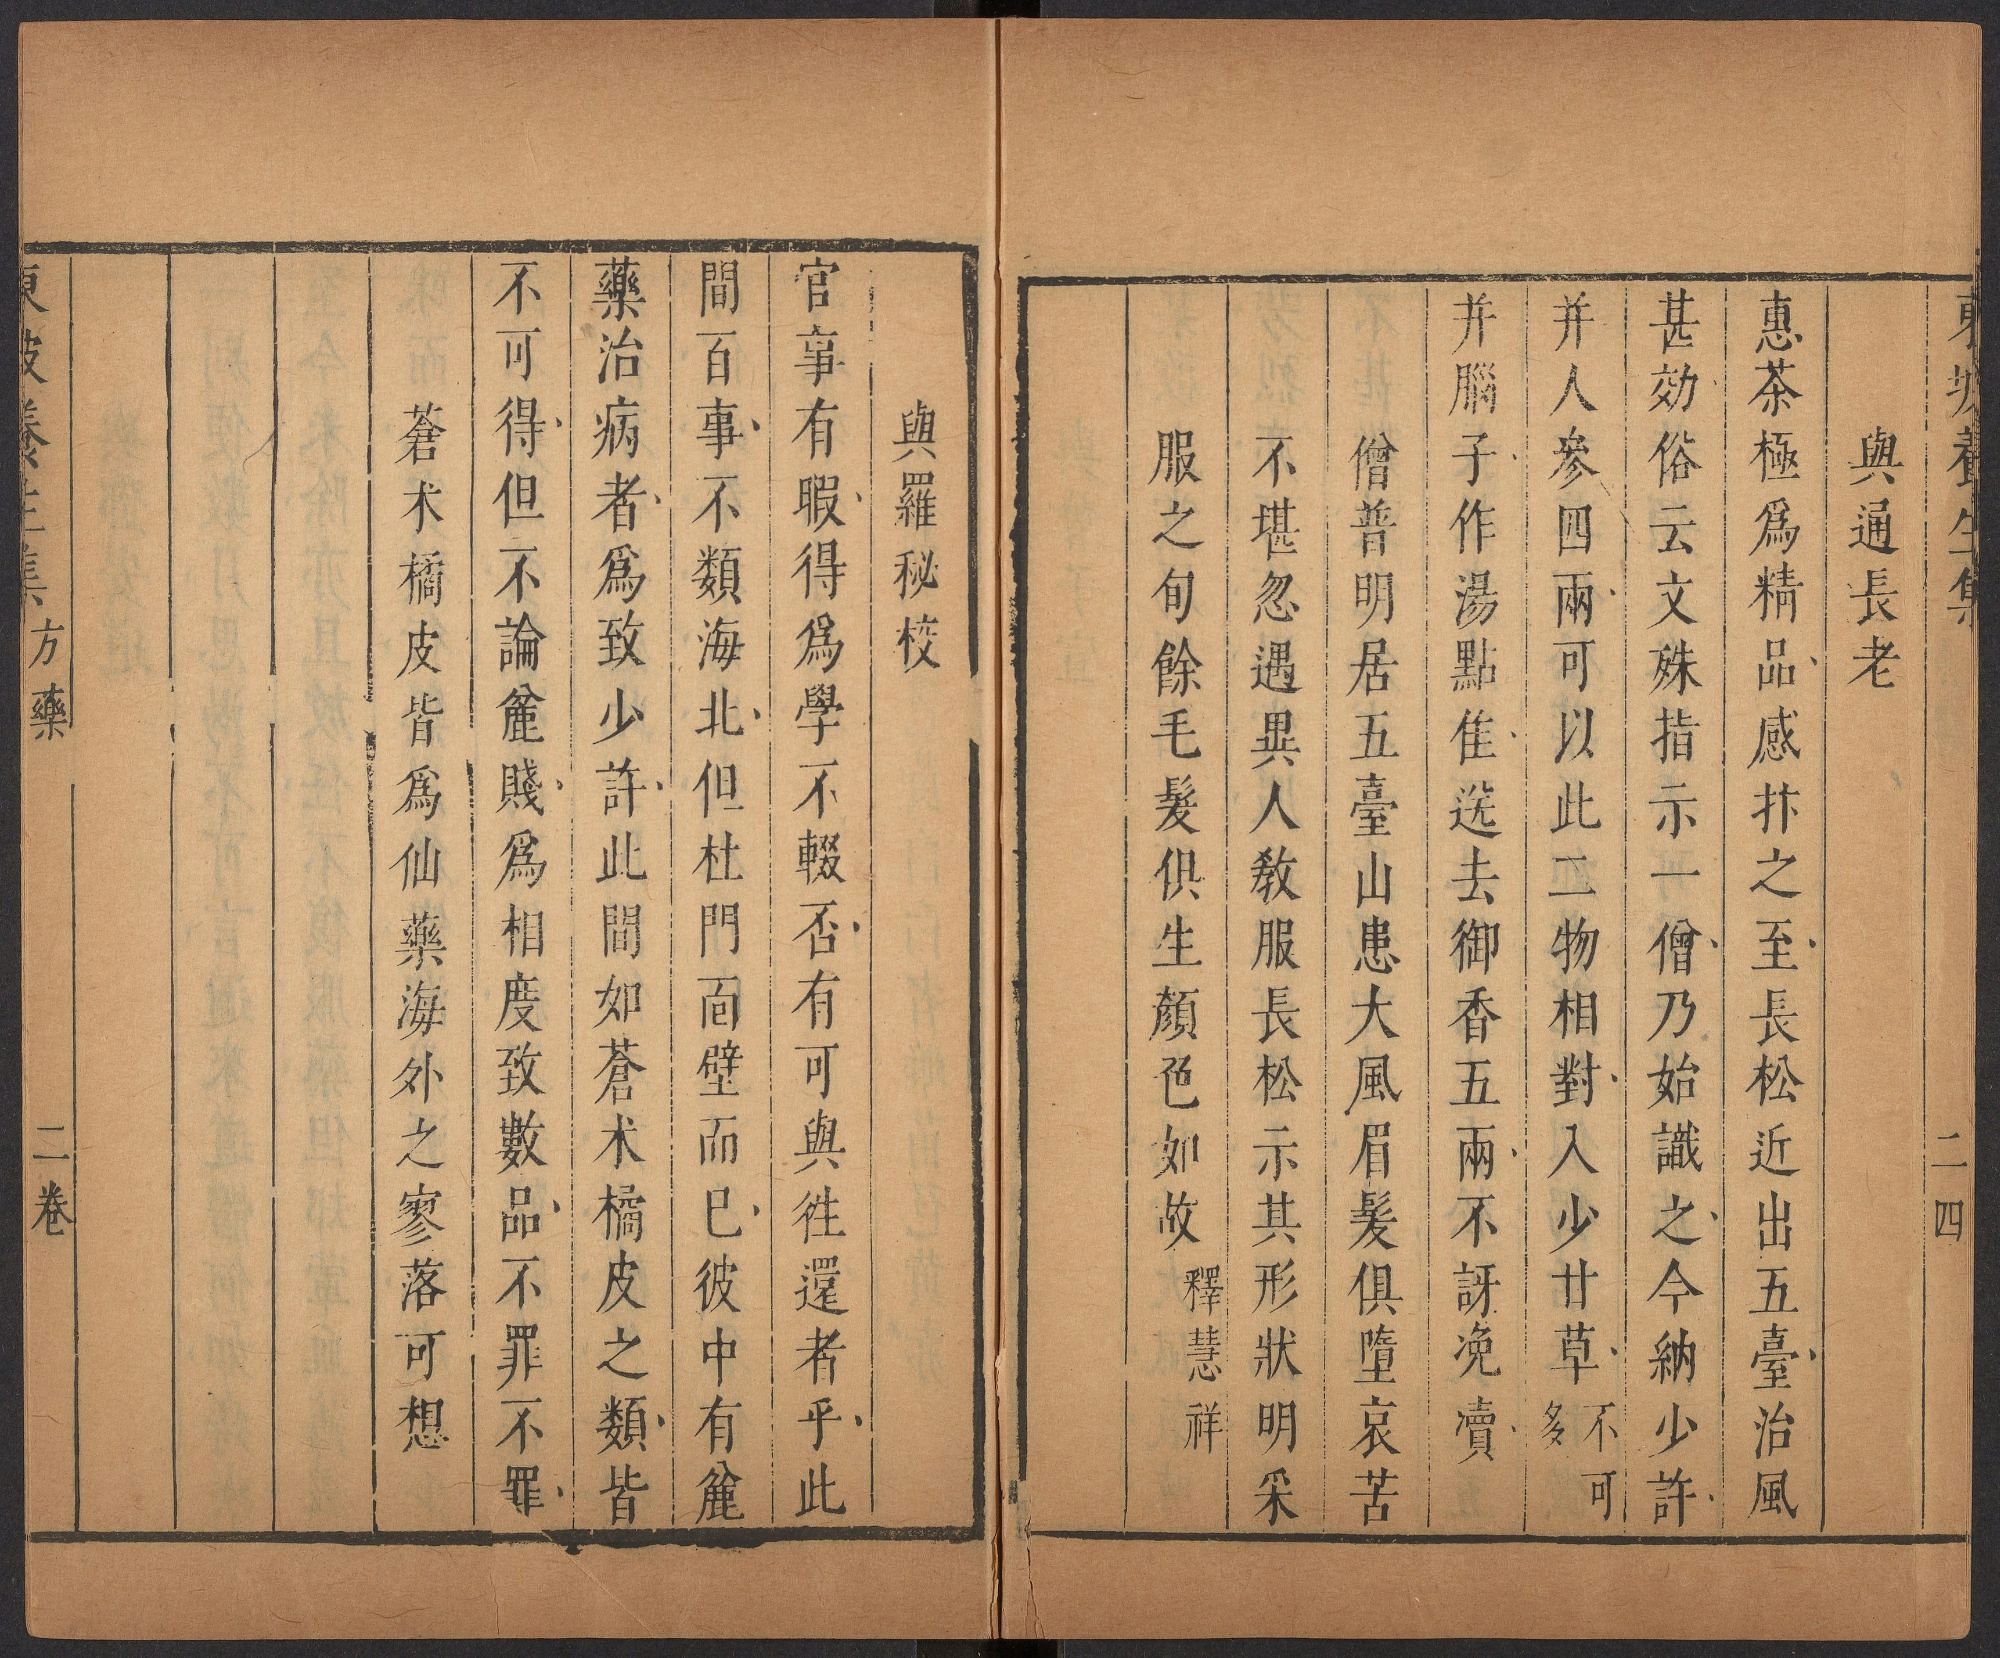 東坡養生集
二四
與通長老
惠茶極爲精品感抃之至長松近出五臺治風
甚効俗云文殊指示一僧乃始識之今納少許
并人參四兩可以此二物相對入少甘草不可多
并腦子作湯點佳选去御香五兩不訝浼瀆
僧普明居五臺山患大風眉髮俱墮哀苦
不堪忽遇異人敎服長松示其形狀明采
服之旬餘毛髮俱生顏色如故釋慧祥
與羅秘校
官事有暇得爲學不輟否有可與徃還者乎此
間百事不類海北但杜門面壁而已彼中有麄
藥治病者爲致少許此間如蒼朮橘皮之類皆
不可得但不論麄賤爲相度致數品不罪不罪
蒼朮橘皮皆爲仙藥海外之寥落可想
東坡養生集
方藥
二卷